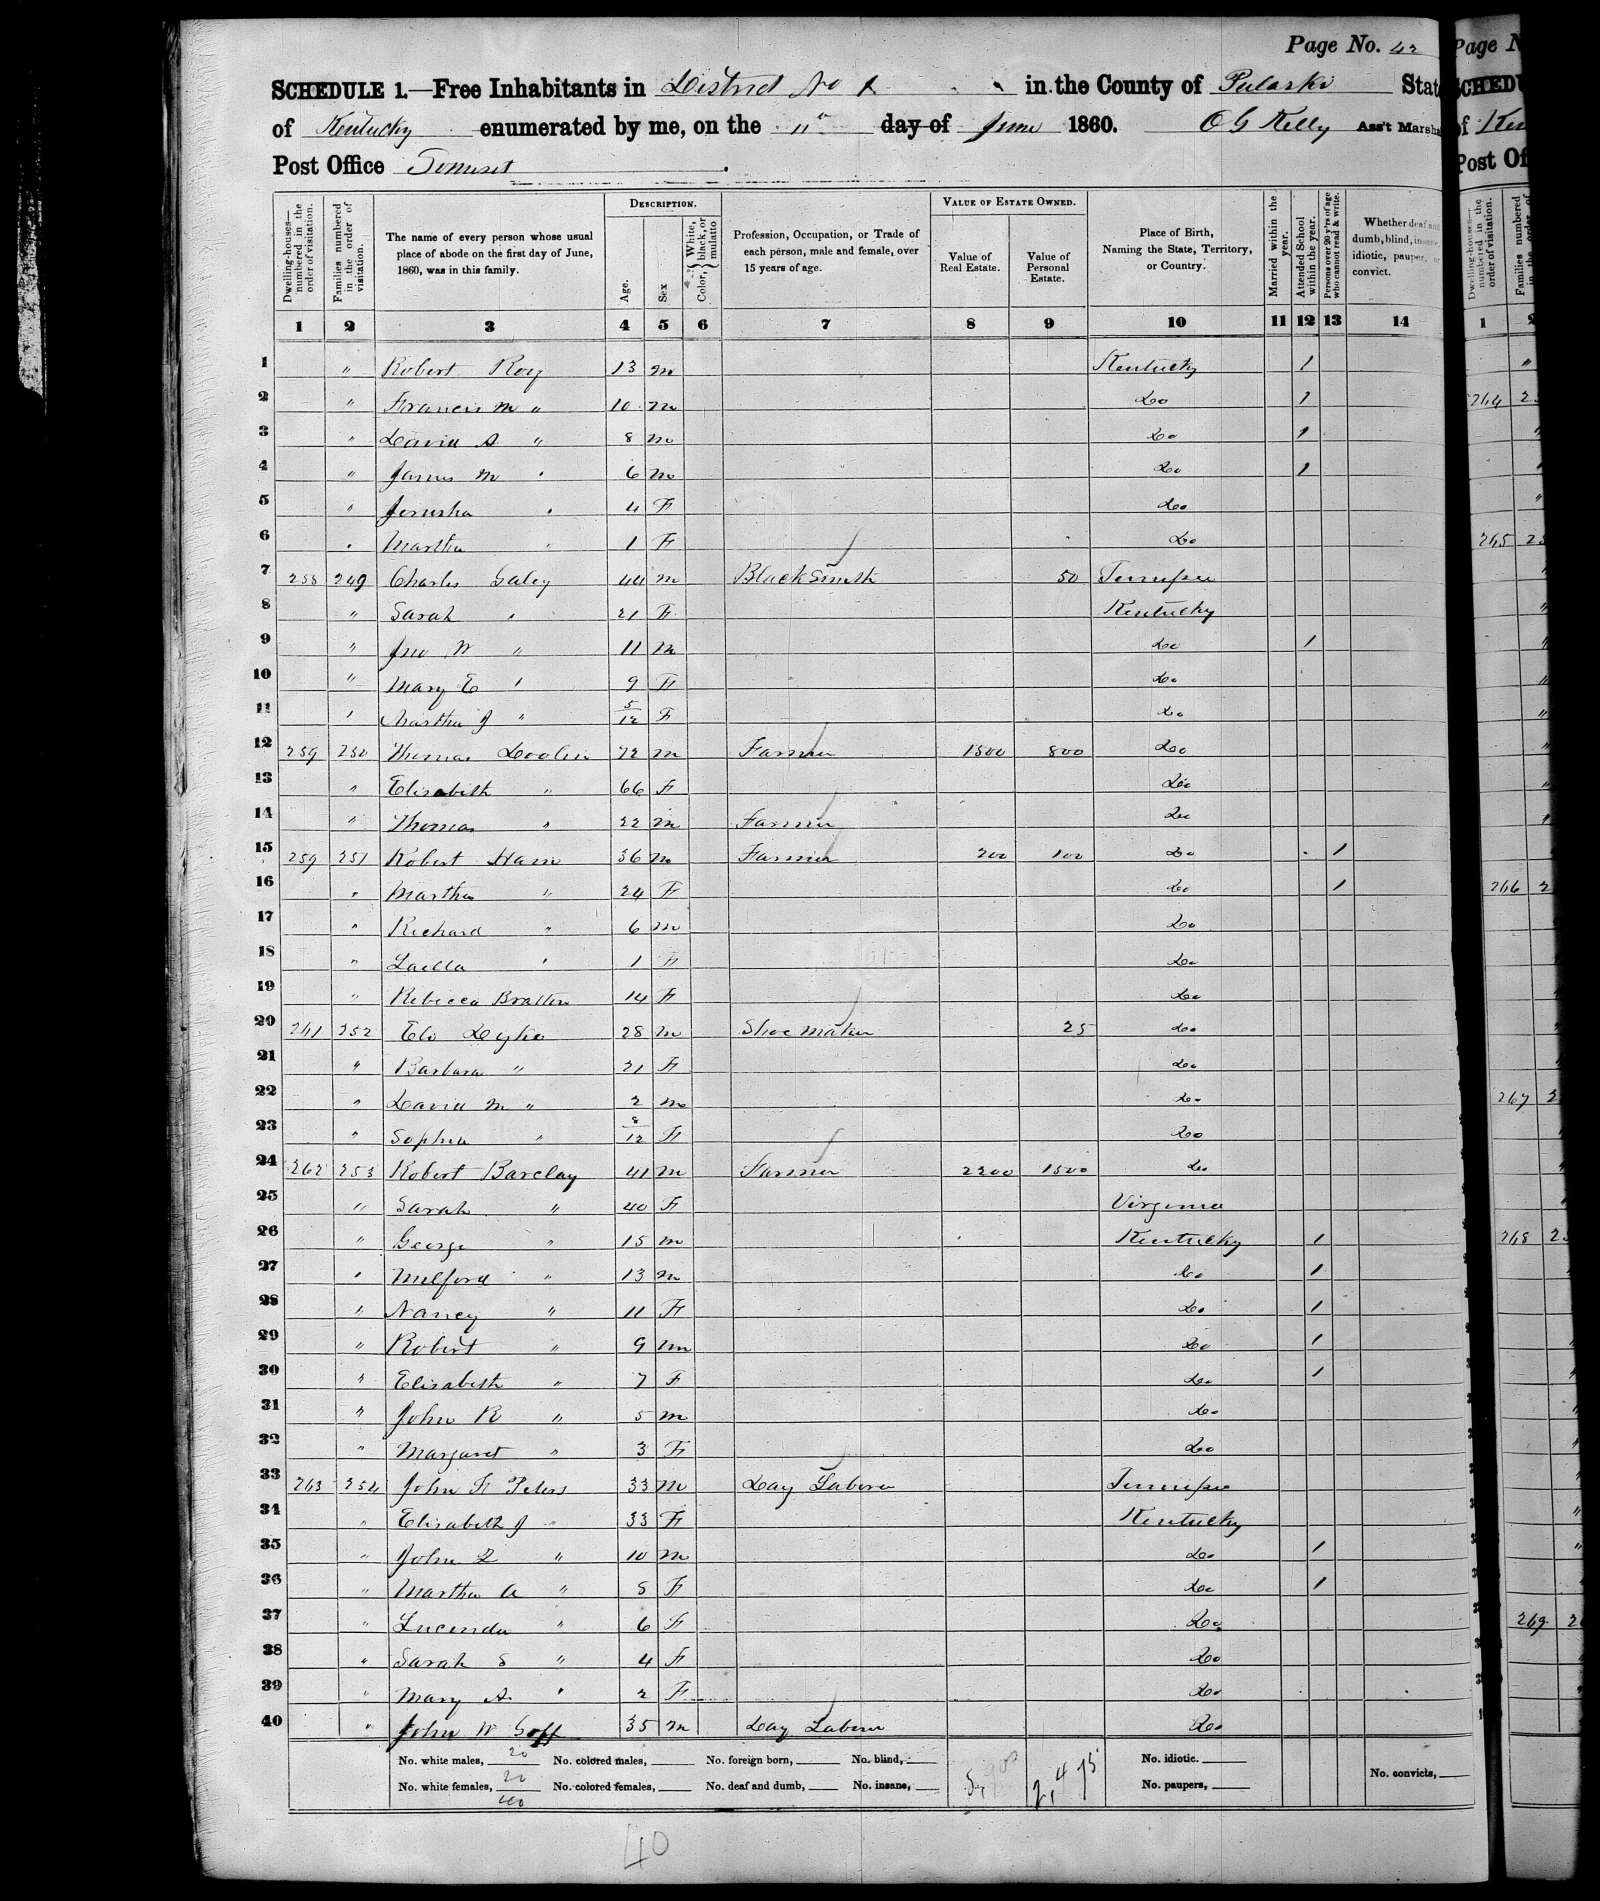 Page No. 42
SCHEDULE 1.—Free Inhabitants in District No 1 in the County of Pulaski State
of Kentucky enumerated by me, on the 11th day of June 1860. O G Kelly Ass't Marsha
Post Office Somerset
Dwelling-houses—numbered in the order of visitation.
Families numbered in the order of visitation.
The name of every person whose usual place of abode on the first day of June, 1860, was in this family.
DESCRIPTION.
Age.
Sex
Color, White, black, or mulatto
Profession, Occupation, or Trade of each person, male and female, over 15 years of age.
VALUE OF ESTATE OWNED.
Value of Real Estate.
Value of Personal Estate.
Place of Birth, Naming the State, Territory, or Country.
Married within the year.
Attended School within the year.
Persons over 20 y'rs of age who cannot read & write.
Whether deaf and dumb, blind, insane, idiotic, pauper, or convict.
1 2 3 4 5 6 7 8 9 10 11 12 13 14
1 " Robert Roy 13 m Kentucky 1
2 " Francis M " 10 m Do 1
3 " David A " 8 m Do 1
4 " James M " 6 m Do 1
5 " Jerusha " 4 F Do
6 " Martha " 1 F Do
7 258 249 Charles Galey 44 m BlackSmith 50 Tennessee
8 " Sarah " 21 F Kentucky
9 " Jno W " 11 m Do 1
10 " Mary E " 9 F Do
11 " Martha J " 5/12 F Do
12 259 250 Thomas Doolin 72 m Farmer 1500 800 Do
13 " Elisabeth " 66 F Do
14 " Thomas " 22 m Farmer Do
15 259 251 Robert Ham 36 m Farmer 200 100 Do 1
16 " Martha " 24 F Do 1
17 " Richard " 6 m Do
18 " Luella " 1 F Do
19 " Rebecca Bratten 14 F Do
20 261 252 Eli Dykes 28 m Shoe Maker 25 Do
21 " Barbara " 21 F Do
22 " David M " 2 m Do
23 " Sophia " 8/12 F Do
24 262 253 Robert Barclay 41 m Farmer 2200 1500 Do
25 " Sarah " 40 F Virginia
26 " George " 15 m Kentucky 1
27 " Milford " 13 m Do 1
28 " Nancy " 11 F Do 1
29 " Robert " 9 m Do 1
30 " Elisabeth " 7 F Do 1
31 " John R " 5 m Do
32 " Margaret " 3 F Do
33 263 254 John F Peters 33 m Day Laborer Tennessee
34 " Elisabeth J " 33 F Kentucky
35 " John " 10 m Do 1
36 " Martha A " 8 F Do 1
37 " Lucinda " 6 F Do
38 " Sarah S " 4 F Do
39 " Mary A " 2 F Do
40 " John W Goff 35 m Day Laborer Do
No. white males, 20 No. colored males, No. foreign born, No. blind, No. idiotic.
No. white females, 20 No. colored females, No. deaf and dumb, No. insane, No. paupers, No. convicts,
40
2,475
40